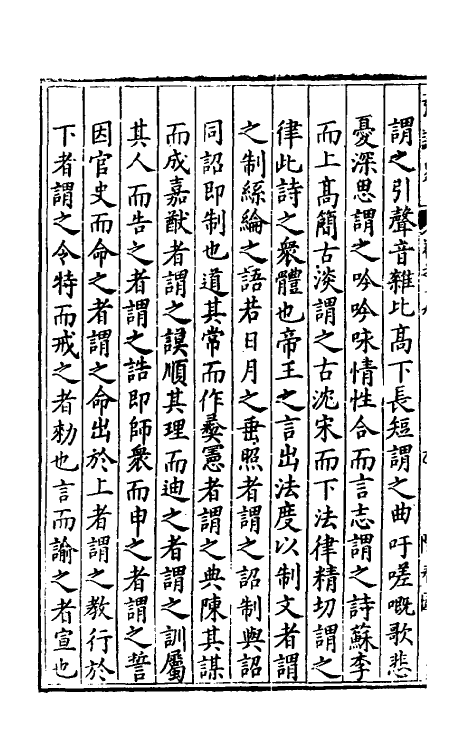 謂之引聲音雜比髙下長短謂之曲吁嗟嘅歌悲
憂深思謂之吟吟咏情性合而言志謂之詩蘇李
而上髙簡古淡謂之古沈宋而下法律精切謂之
律此詩之衆體也帝王之言出法度以制文者謂
之制絲綸之語若日月之垂照者謂之詔制與詔
同詔即制也道其常而作彜憲者謂之典陳其謀
而成嘉猷者謂之謨順其理而迪之者謂之訓屬
其人而告之者謂之誥即師衆而申之者謂之誓
因官史而命之者謂之命出於上者謂之教行於
下者謂之令特而戒之者勑也言而諭之者宣也